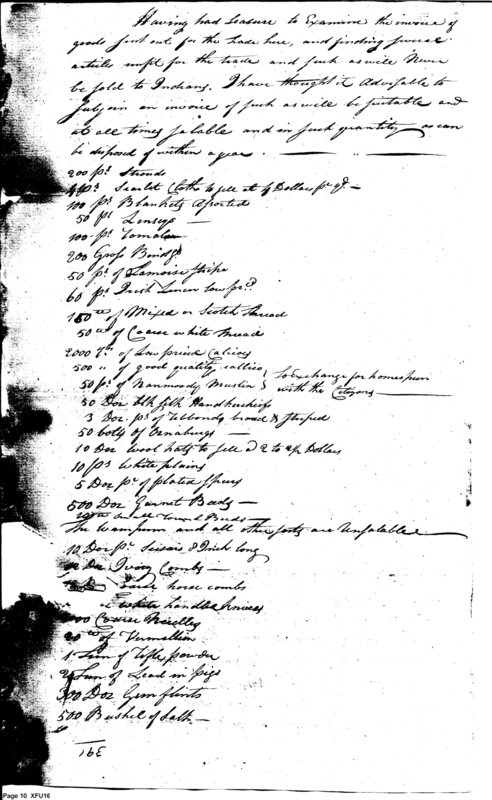 Having had Leasure to Examine the invoice of
goods sent out for the trade here, and finding several
articles unfit for the trade and such as will Never
be sold to Indians. I have thought it Advisable to
Subjoin an invoice of such as will be suitable and
at all times salable and in such quantity as can
be disposed of within a year.
200 ps. Strouds
4 ps. Scarlet Cloths to sell at 4 Dollars pr. yd.
100 ps Blankets Assorted
50 ps. Linseys
100 ps.
200 Gross Bindgs.
50 ps. of Stripe
60 ps. Irish Linen low pr.d
150 lb of Mixed or Scotch thread
50 lb of Coarse white thread
2000 yds. of Low prised Calicoes
500 " of good quality callico } to Exchange for homespun
50 ps. of Muslin } with the Citizens
50 Doz silk Handkerchiefs
3 Doz. ps. of ribbonds broad & striped
50 bolts of Oznabrugs
10 Doz wool hats to sell @ 2 to 2½ Dollars
10 ps White plains
5 Doz pr. of plated spurs
500 Doz Garnet Beeds
small Beeds
The Wampum and all other sorts are Unsalable
10 Doz pr. Scissors 8 Inch long
Doz Ivory Combs
horse combs
white handled knives
Coarse Needles
20 lb of Vermillion
1 Tun of Rifle powder
2 Tun of Lead in pigs
300 Doz Gun flints
500 Bushel of Salt
163
Page 10 XFU16